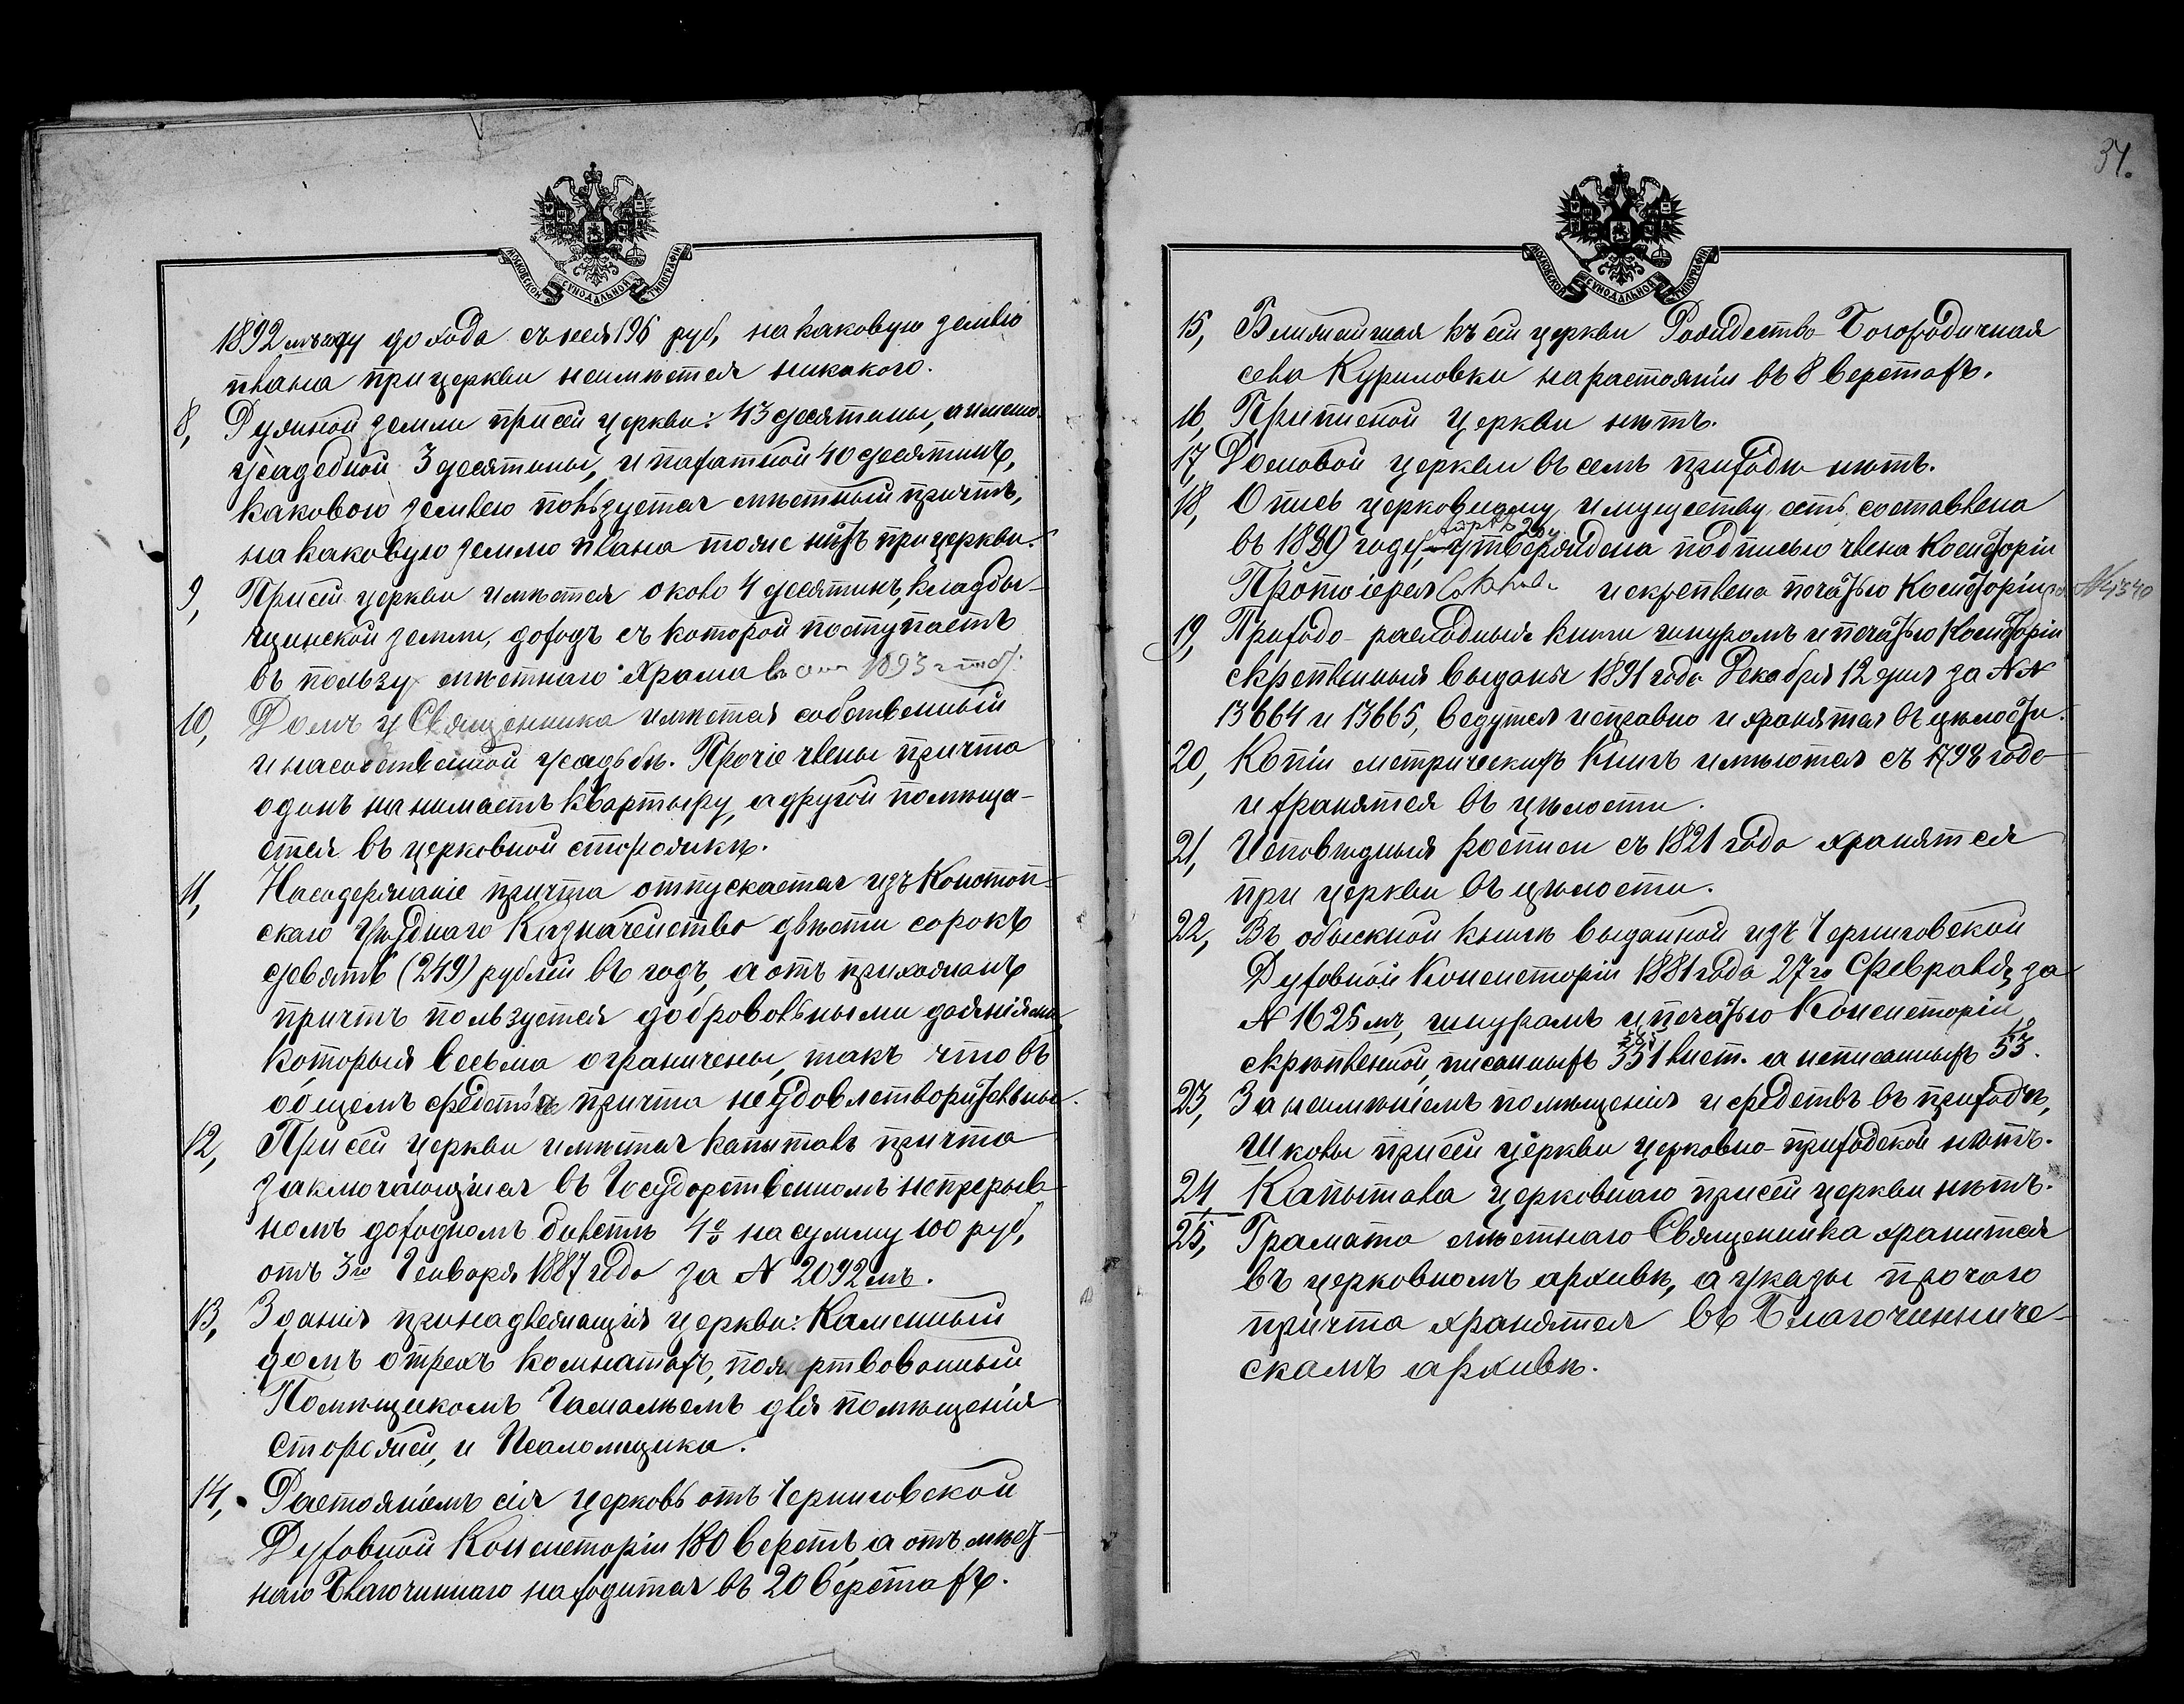 МОСКОВСКОЙ СѴНОДАЛЬНОЙ ТИПОГРАФІИ
1892 мъ году дохода съ нея 196 руб, на каковую землю
плана при церкви неимѣется никакого.
8, Ружной земли при сей церкви: 43 десятины, а имено
усадебной 3 десятины, и пахатной 40 десятинъ,
каковою землею пользуется мѣстный причтъ,
на каковую землю плана тоже нѣтъ при церкви.
9, При сей церкви имѣется около 4 десятинъ, кладби-
щинской земли, доходъ съ которой поступаетъ
въ пользу мѣстнаго Храма 1893
10, Домъ у Священника имѣется собственный
и на собственной усадьбѣ. Прочіе члены причта
одинъ нанимаетъ квартыру, а другой помѣща-
ется въ церковной сторожкѣ.
11, На содержаніе причта отпускается изъ Конотоп-
скаго Уѣзднаго Казначейства двѣсти сорокъ
девять (249) рублей въ годъ, а отъ прихожанъ
причтъ пользуется добровольными даяніями,
которыя весьма ограничены, такъ что въ
общемъ средства причта неудовлетворительны.
12, При сей церкви имѣется капыталъ причта
заключающійся въ Государственномъ непрерыв-
номъ доходномъ билетѣ 4% на сумму 100 руб,
отъ 3го Генваря 1887 года за N 2092 мъ.
13, Зданія принадлежащія церкви: Каменный
домъ о трехъ комнатахъ, пожертвованный
Помѣщикомъ Гамалѣемъ для помѣщенія
Сторожей, и Псаломщика.
14, Растояніемъ сія церковь отъ Черниговской
Духовной Консисторіи 180 верстъ, а отъ мѣст-
наго Благочиннаго находится въ 20 верстахъ.
37.
МОСКОВСКОЙ СѴНОДАЛЬНОЙ ТИПОГРАФІИ
15, Ближайшая къ сей церкви Рождество-Богородичная
села Куриловки на растояніи въ 8 верстахъ.
16, Приписной церкви нѣтъ.
17, Домовой церкви въ семъ приходѣ нѣтъ.
18, Опись церковному имуществу есть, составлена
въ 1889 году, утверждена подписью члена Консисторіи
Протоіерея и скреплена печатью Консисторіи N 4340
19, Приходо-расходныя книги шнуромъ и печатью Консисторіи
скрепленныя выданы 1891 года Декабря 12 дня за NN
13664 и 13665, ведутся исправно и хранятся въ цѣлости.
20, Копіи метрическихъ книгъ имѣются съ 1798 года
и хранятся въ цѣлости.
21, Исповѣдныя росписи съ 1821 года хранятся
при церкви въ цѣлости.
22, Въ обыскной книгѣ выданной изъ Черниговской
Духовной Консисторіи 1881 года 27го Февраля, за
N 1625 мъ, шнуромъ и печатью Консисторіи
скрѣпленной, писанныхъ 351 лист. а неписанныхъ 53.
23, За неимѣніемъ помѣщенія и средствъ въ приходѣ,
Школы при сей церкви церковно-приходской нѣтъ.
24, Капытала церковнаго при сей церкви нѣтъ.
25, Грамата мѣстнаго Священника хранится
въ церковномъ архивѣ, а указы прочаго
причта хранятся въ Благочинниче-
скамъ архивѣ.